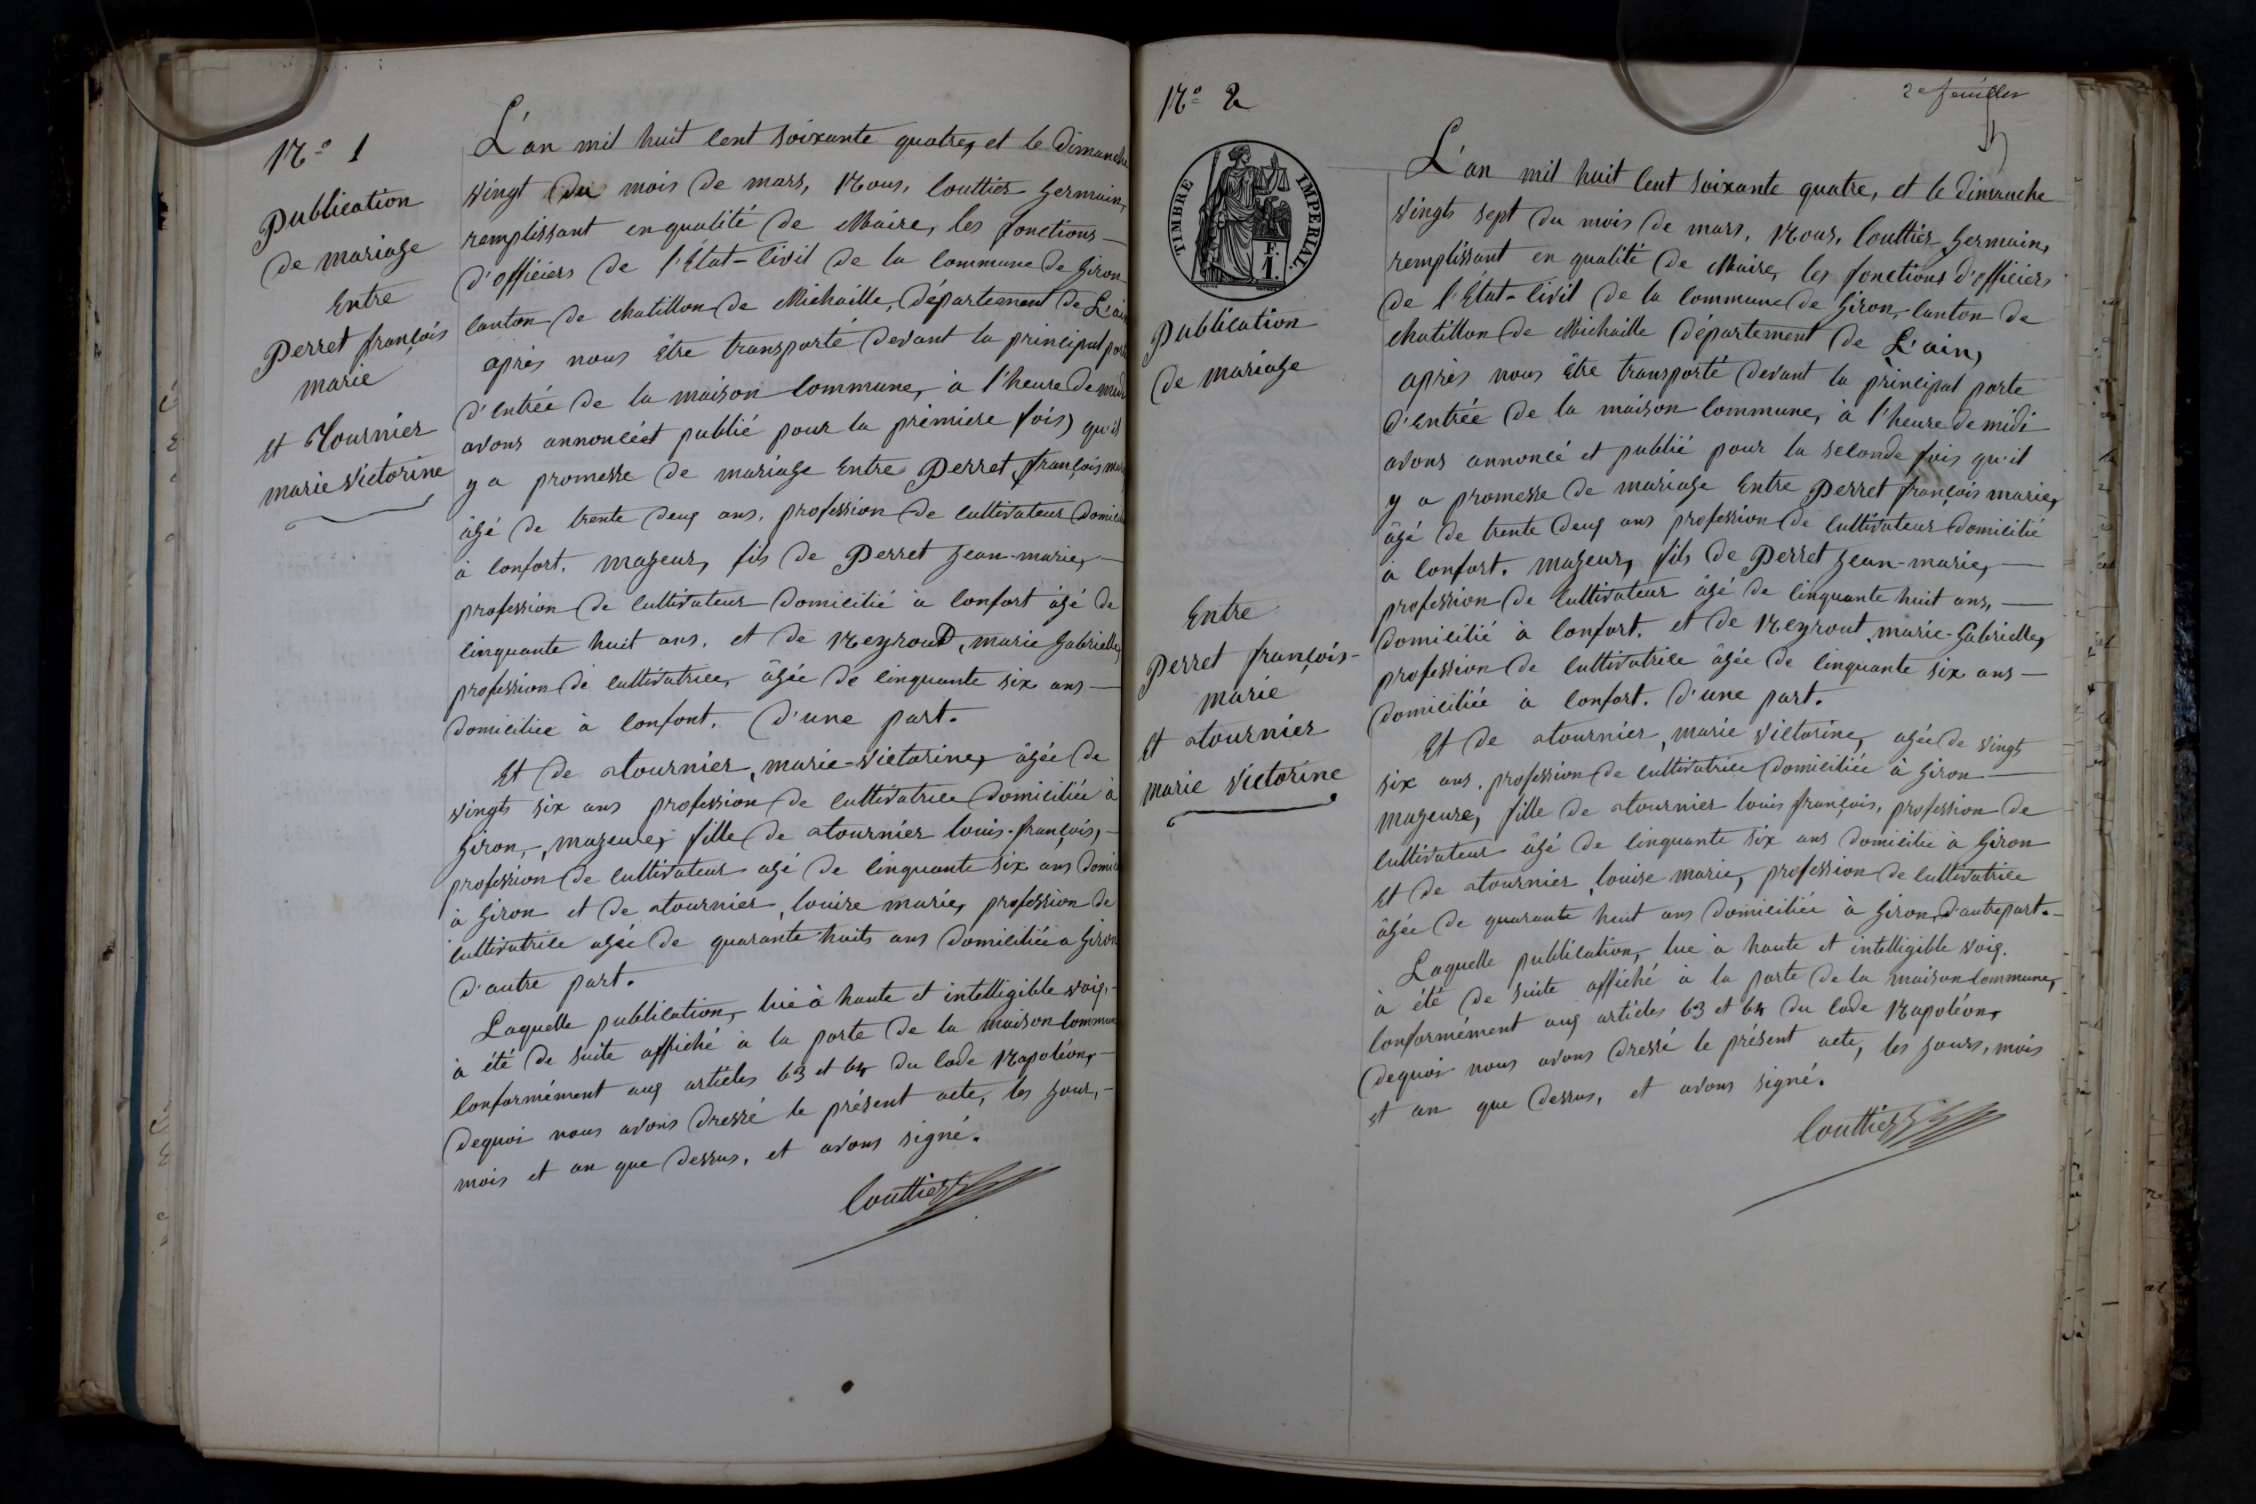 N° 1
Publication
de mariage
Entre
Perret françois
marie
et Tournier
marie victorine
L'an mil huit cent soixante quatre, et le dimanche
vingt du mois de mars, Nous, Couttier Germain,
remplissant en qualité de Maire, les fonctions
d'officiers de l'État-Civil de la commune de Giron
canton de chatillon de Michaille, département de L'ain
après nous être transporté devant la principal porte
d'entrée de la maison commune, à l'heure de midi
avons annoncé et publié pour la première fois) qu'il
y a promesse de mariage Entre Perret, françois marie
âgé de trente deux ans, profession de cultivateur domicilié
à confort. majeur, fils de Perret Jean-marie,
profession de cultivateur domicilié à confort âgé de
cinquante huit ans, et de Neyroud, marie Gabrielle,
profession de cultivatrice, âgée de cinquante six ans
domiciliée à confort. d'une part.
Et de Tournier, marie-victorine, âgée de
vingts six ans profession de cultivatrice domiciliée à
Giron, majeure, fille de Tournier louis-françois,
profession de cultivateur agé de cinquante six ans domicilié
à Giron et de Tournier, louise marie, profession de
cultivatrice agée de quarante huits ans domiciliée a Giron
d'autre part.
Laquelle publication, lue à haute et intelligible voix,
à été de suite affiché à la porte de la maison commune
conformément aux articles 63 et 64 du code Napoléon,
dequoi nous avons dressé le présent acte, les jour,
mois et an que dessus, et avons signé.
Couttier
N° 2
2e feuillet
TIMBRE IMPERIAL.
F.
1.
Publication
de mariage
Entre
Perret françois-
marie
et Tournier
marie victorine
L'an mil huit cent soixante quatre, et le dimanche
vingts sept du mois de mars, Nous, Couttier Germain,
remplissant en qualité de Maire, les fonctions d'officiers
de l'État-Civil de la commune de Giron, canton de
chatillon de Michaille département de L'ain,
après nous être transporté devant la principal porte
d'entrée de la maison commune, à l'heure de midi
avons annoncé et publié pour la seconde fois qu'il
y a promesse de mariage Entre Perret françois marie,
âgé de trente deux ans profession de cultivateur domicilié
à confort. majeur, fils de Perret Jean-marie,
profession de cultivateur âgé de cinquante huit ans,
domicilié à confort. et de Neyrout, marie-Gabrielle,
profession de cultivatrice âgée de cinquante six ans
domiciliée à confort. d'une part.
Et de Tournier, marie victorine, agée de vingts
six ans, profession de cultivatrice domiciliée à Giron
majeure, fille de Tournier louis françois, profession de
cultivateur âgé de cinquante six ans domicilié à Giron
Et de Tournier, louise marie, profession de cultivatrice
âgée de quarante huit ans domiciliée à Giron, d'autrepart.
Laquelle publication, lue à haute et intelligible voix.
à été de suite affiché à la porte de la maison commune,
conformément aux articles 63 et 64 du code Napoléon,
dequoi nous avons dressé le présent acte, les jours, mois
et an que dessus, et avons signé.
Couttier